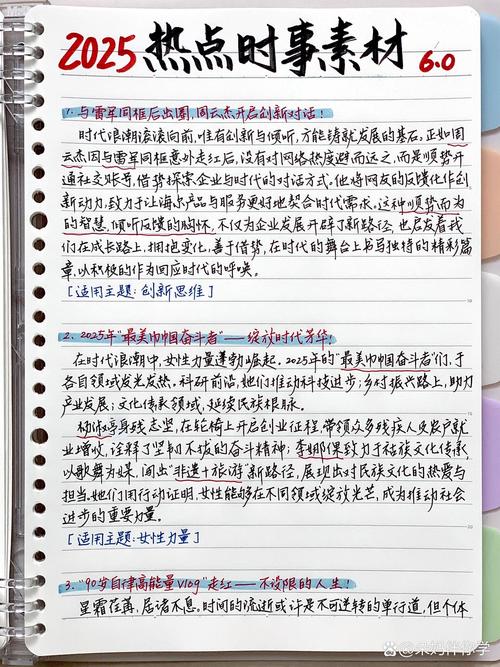 2025 热点时事素材 6.0
1. 与雷军同框后出圈,周云杰开启创新对话!
时代浪潮滚滚向前,唯有创新与倾听,方能铸就发展的基石。正如周
云杰因与雷军同框意外走红后,没有对网络热度避而远之,而是顺势开
通社交账号,借势探索企业与时代的对话方式。他将网友的反馈化作创
新动力,致力于让海尔产品与服务更好地契合时代需求。这种顺势而为
的智慧,倾听反馈的胸怀,不仅为企业发展开辟了新路径,也启发着我
们在成长路上,拥抱变化,善于借势,在时代的舞台上书写独特的精彩篇
章,以积极的作为回应时代的呼唤。
[适用主题:创新思维]
2. 2025年"最美巾帼奋斗者"——绽放时代芳华!
在时代浪潮中,女性力量蓬勃崛起。2025年的"最美巾帼奋斗者"们,于
各自领域发光发热。科研前沿,她们推动科技进步;乡村振兴路上,助力
产业发展;文化传承领域,延续民族根脉。
杨淑亭身残志坚,在轮椅上开启创业征程,带领众多残疾人及农户就
业增收,诠释了坚韧不拔的奋斗精神;李娜倮致力于拉祜族文化传承,
以歌舞为媒,闯出"非遗+旅游"新路径,展现出对民族文化的热爱与
担当。她们用行动证明,女性能够在不同领域绽放光芒,成为推动社会
进步的重要力量。
[适用主题:女性力量]
3. "90岁自律高能量Vlog"走红——不设限的人生!
星霜荏苒,居诸不息。时间的流逝或许是不可逆转的单行道,但个体